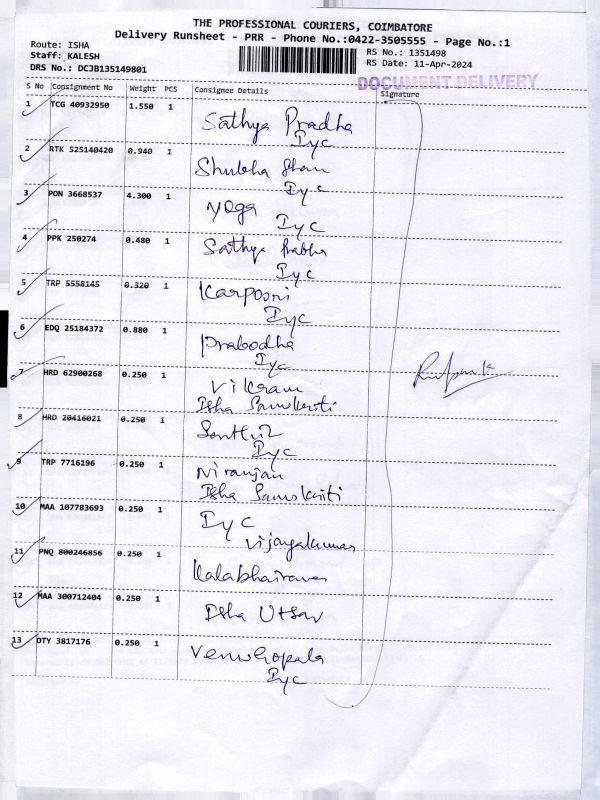 THE PROFESSIONAL COURIERS, COIMBATORE
Delivery Runsheet - PRR - Phone No.:0422-3505555 - Page No.:1
Route: ISHA
Staff: KALESH
DRS No.: DCJB135149801
RS No.: 1351498
RS Date: 11-Apr-2024
DOCUMENT DELIVERY
S No Consignment No Weight PCS Consignee Details Signature
1 TCG 40932950 1.550 1 Sathya Pradha
Iyc
2 RTK 525140420 0.940 1 Shubha
Iyc
3 PON 3668537 4.300 1 yoga
Iyc
4 PPK 250274 0.480 1 Sathya Prabha
Iyc
5 TRP 5558145 0.320 1 Karpoori
Iyc
6 EDQ 25184372 0.880 1 Prabodha
Iyc
7 HRD 62900268 0.250 1 Vikram
Isha Samskriti
8 HRD 20416021 0.250 1 Senthil
Iyc
9 TRP 7716196 0.250 1 Niranjan
Isha Samskriti
10 MAA 107783693 0.250 1 Iyc
Vijayakumar
11 PNQ 800246856 0.250 1 Kalabhairava
12 MAA 300712404 0.250 1 Isha Utsav
13 OTY 3817176 0.250 1 Venugopala
Iyc